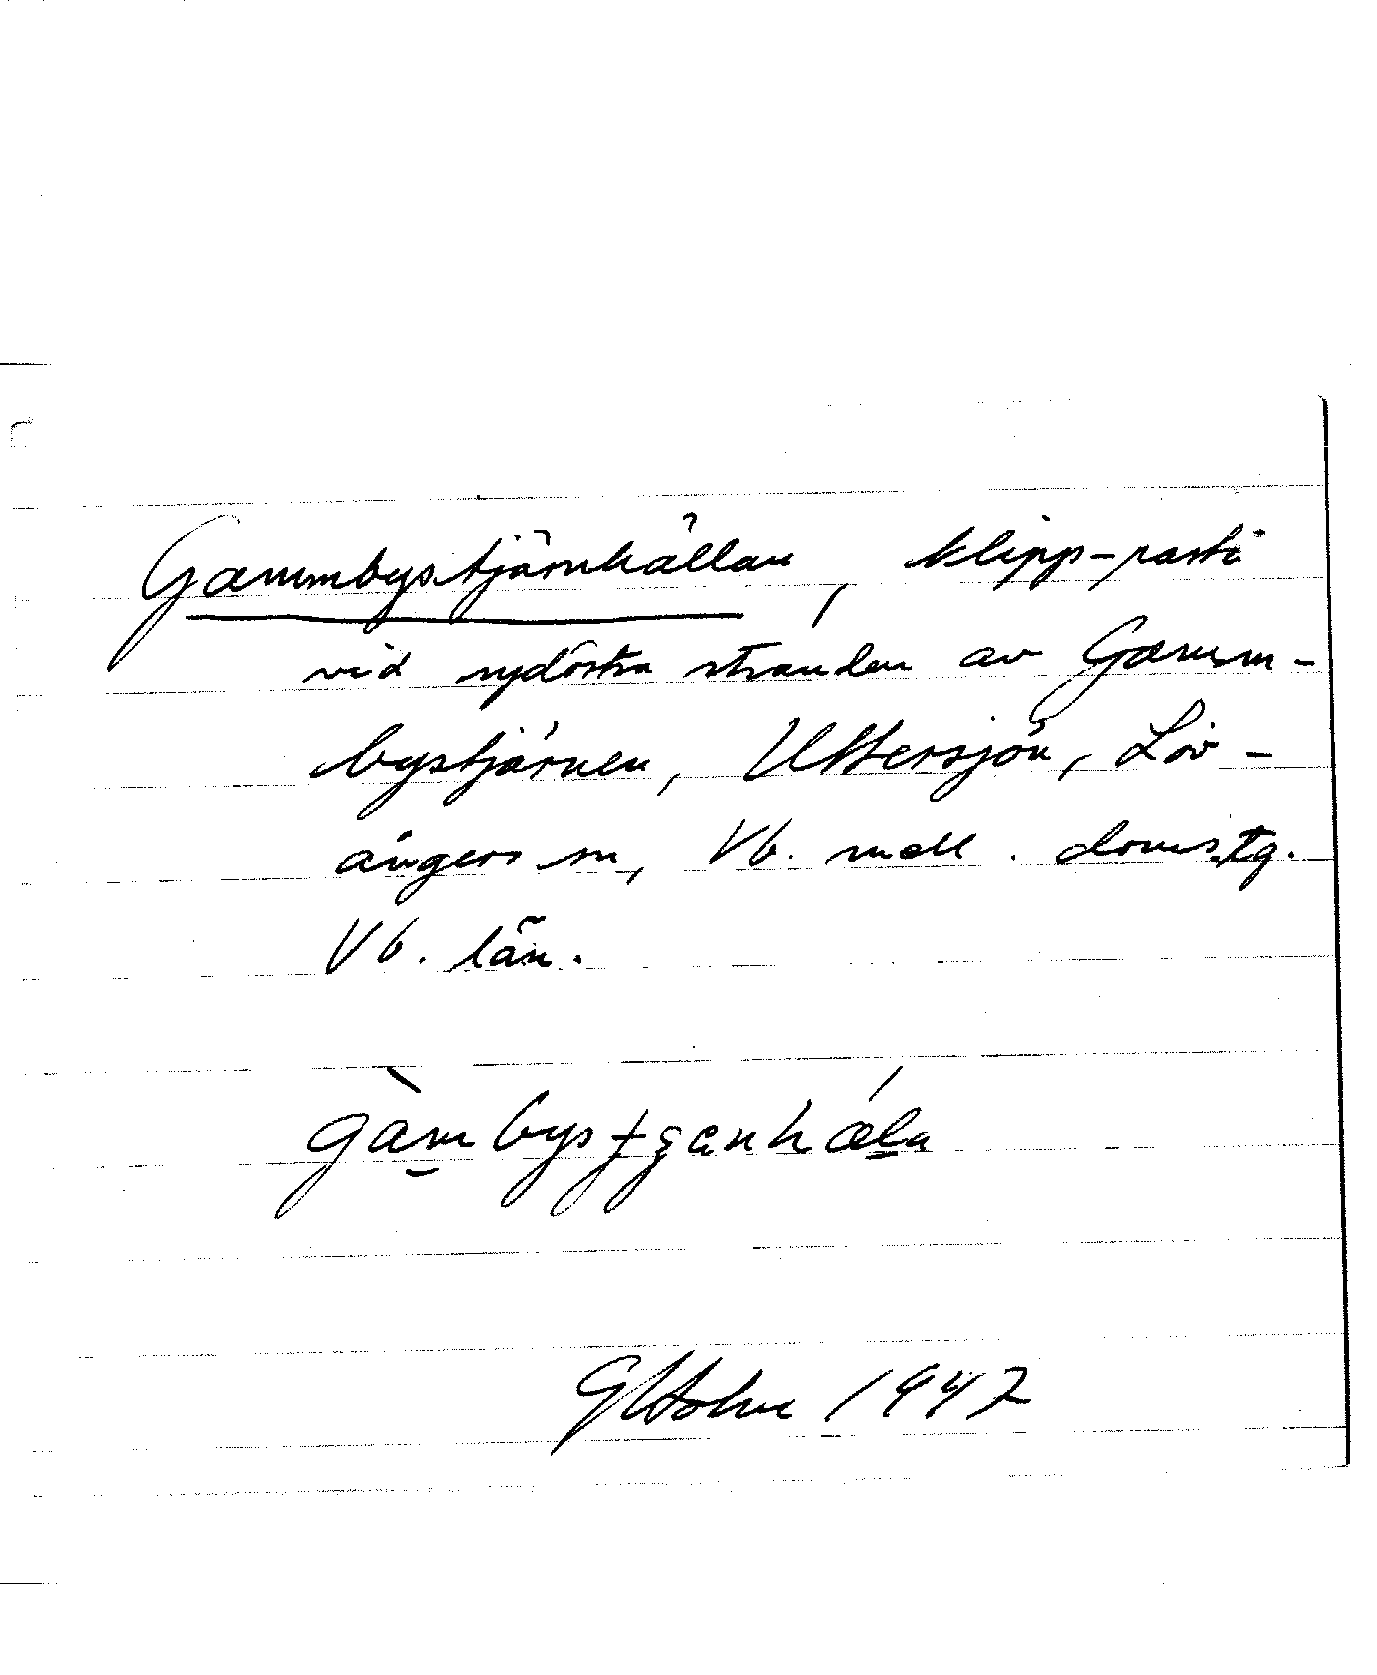 Gammbystjärnhällan, klipp-parti
vid sydöstra stranden av Gamm-
bystjärnen, Uttersjön, Löv-
ångers sn, Vb. mell. domstg.
Vb. län.
G Holm 1947